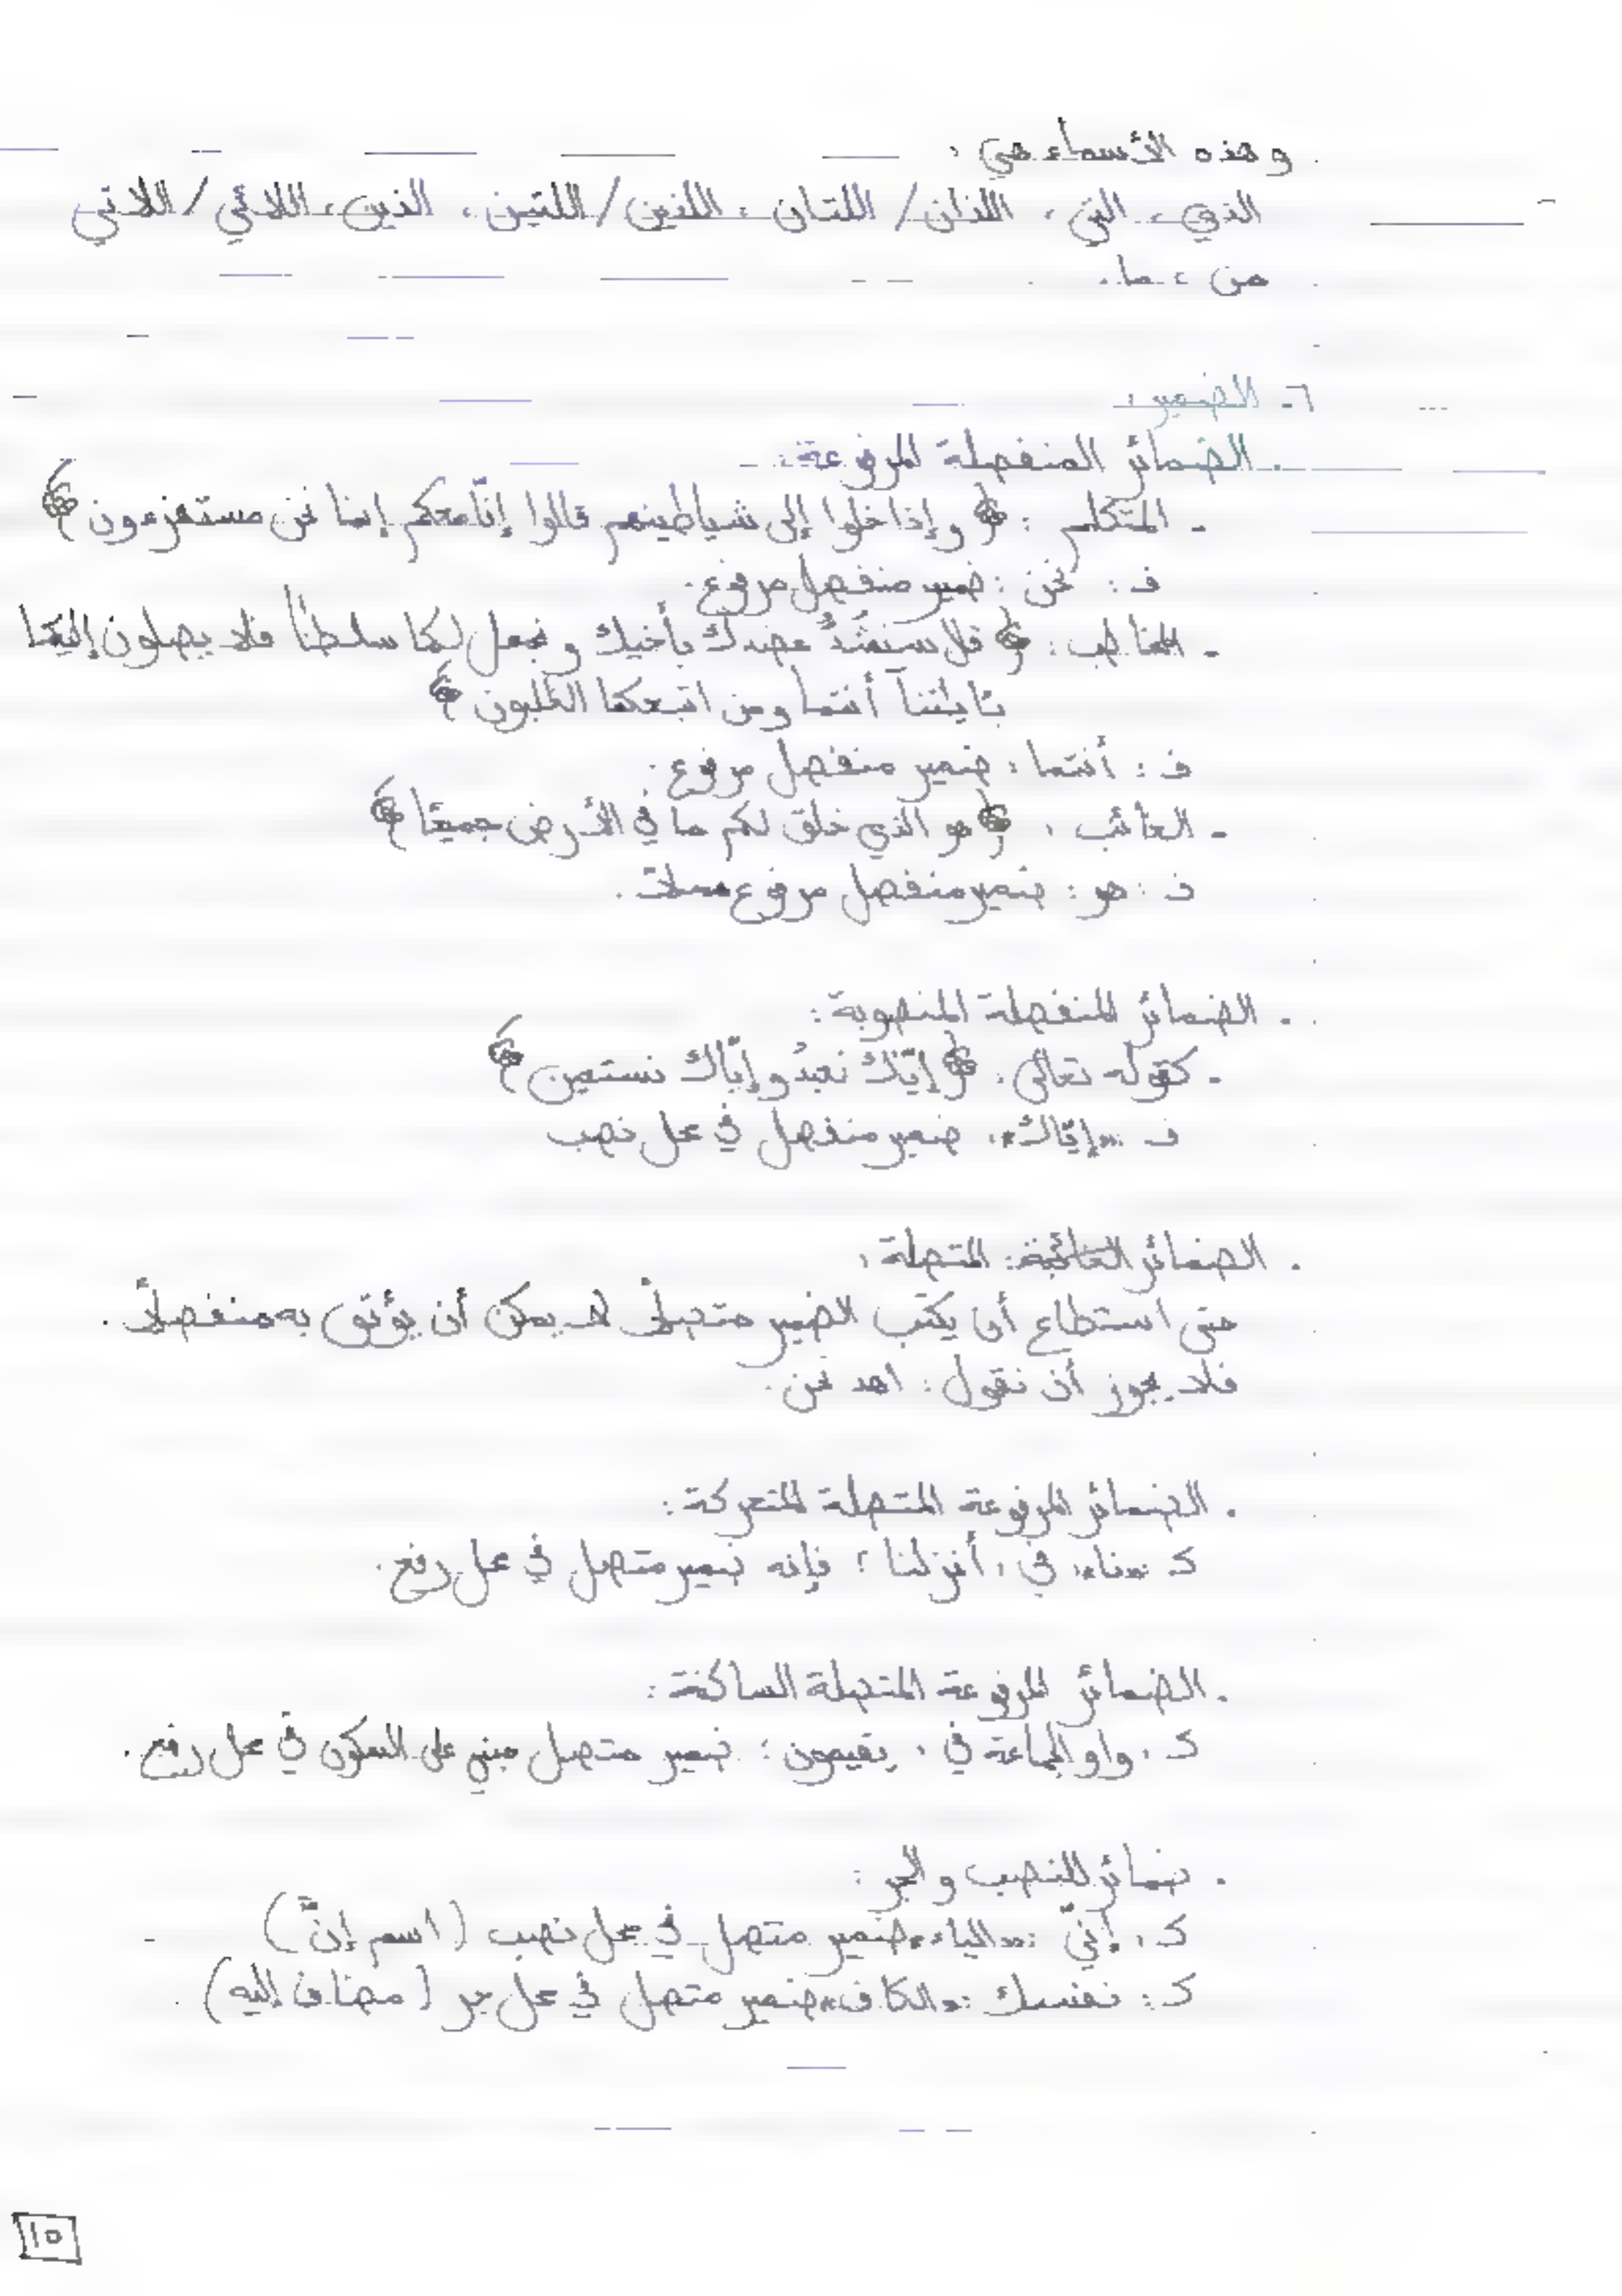 وهذه الأسماء هي :
الذي ، التي ، اللذان / اللتان ، اللذين / اللتين ، الذين ، اللائي / اللاتي
من ، ما .
٦- الضمير :
. الضمائر المنفصلة المرفوعة :
- المتكلم : ﴿ وإذا خلوا إلى شياطينهم قالوا إنّا معكم إنما نحن مستهزءون ﴾
فـ : نحن : ضمير منفصل مرفوع .
- المخاطب : ﴿ قلا سنشدُّ عضدك بأخيك ونجعل لكما سلطنا فلا يصلون إليكما
بئايتنا أنتما ومن اتبعكما الغلبون ﴾
فـ : أنتما : ضمير منفصل مرفوع .
- الغائب : ﴿ هو الذي خلق لكم ما في الأرض جميعًا ﴾
فـ : هو : ضمير منفصل مرفوع .
. الضمائر المنفصلة المنصوبة :
- كقوله تعالى : ﴿ إيّاك نعبدُ وإيّاك نستعين ﴾
فـ «إيّاك» : ضمير منفصل في محل نصب
. الضمائر المتصلة :
متى استطاع أن يكتب الضمير متصلاً لا يمكن أن يؤتى به منفصلاً .
فلا يجوز أن نقول : اهد نحن .
. الضمائر المرفوعة المتصلة المتحركة :
كـ «نا» في : أنزلنا ؛ فإنه ضمير متصل في محل رفع .
. الضمائر المرفوعة المتصلة الساكنة :
كـ : واو الجماعة في : يقيمون ؛ ضمير متصل مبني على السكون في محل رفع .
. ضمائر للنصب والجر :
كـ : إنّي : «الياء» ضمير متصل في محل نصب ( اسم إنّ )
كـ : نفسك : «الكاف» ضمير متصل في محل جر ( مضاف إليه )
١٥